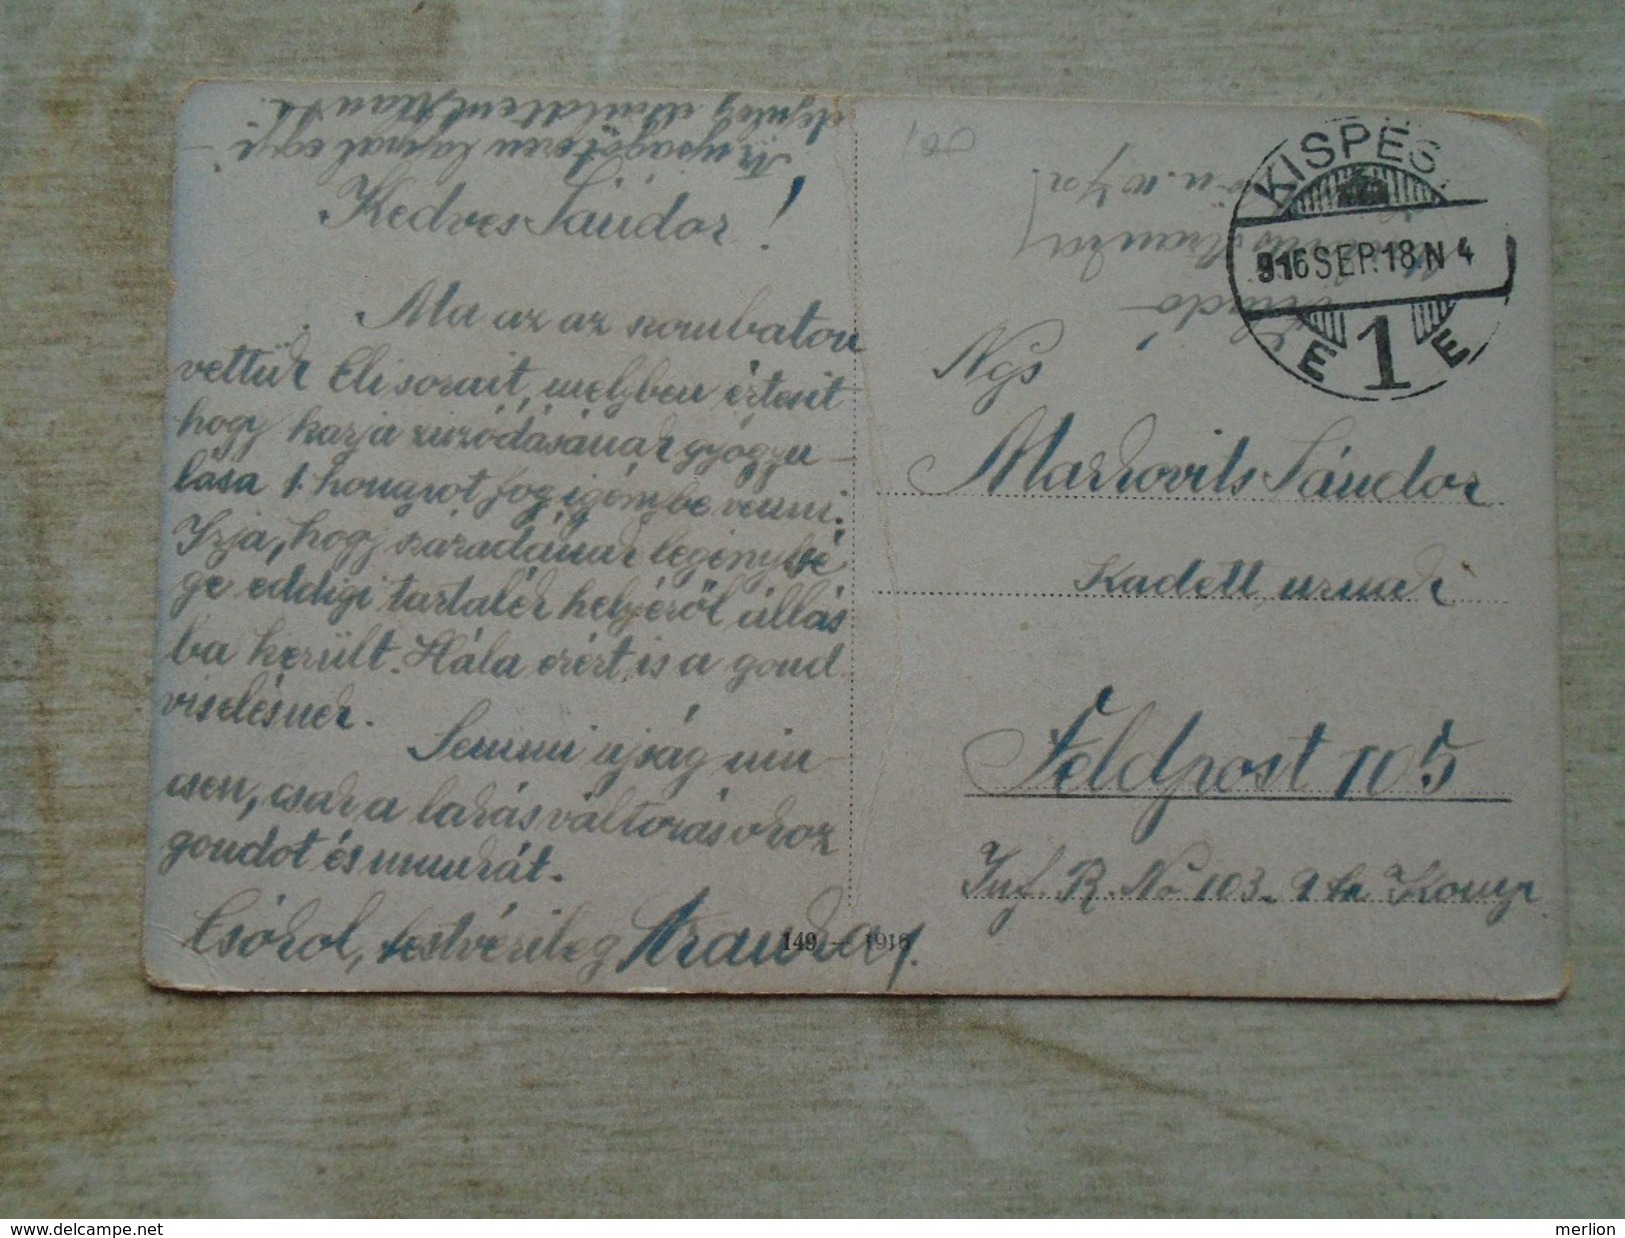 Az ujságot ezen lappal egy
idejüleg
Kedves Sándor!
Ma az az szombaton
vettük Eli sorait, melyben értesit
hogy karja zuzódásának gyógyu-
lása 1 hónapot fog igénybe venni.
Irja, hogy századának legénysé
ge eddigi tartalék helyéről állás
ba került. Hála ezért is a gond
viselésnek.
Semmi ujság nin
csen, csak a lakás változás okoz
gondot és munkát.
Csókol, testvérileg
149 — 1916
100
KISPES
916 SEP. 18. N 4
E 1 E
Ngs
Markovits Sándor
Kadett urnak
Feldpost 105
Inf. R. No 103. 9 te Komp
merlion
delcampe.net